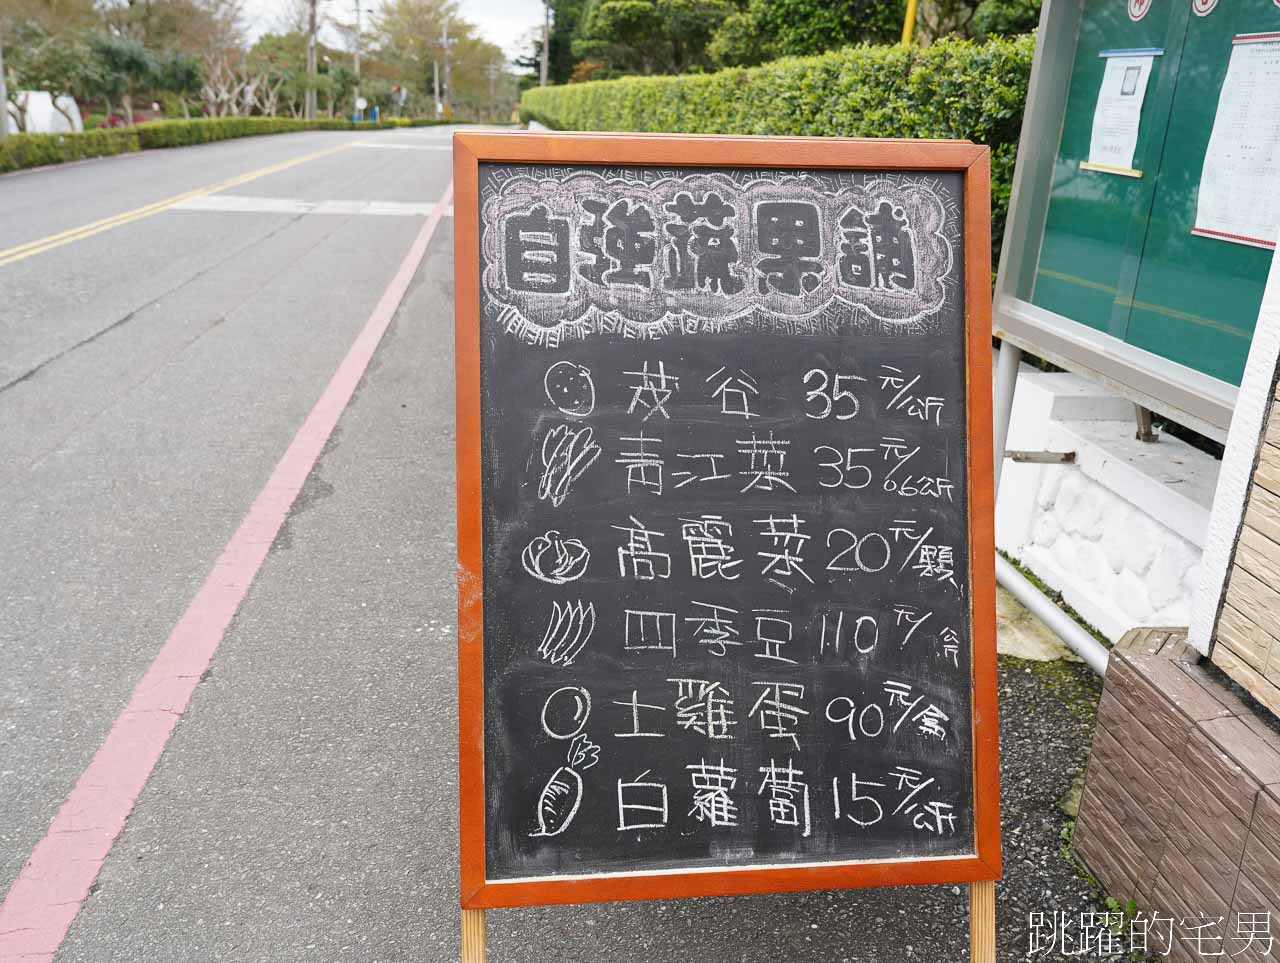 自強蔬果舖
茂谷 35元/公斤
青江菜 35元/0.6公斤
高麗菜 20元/顆
四季豆 110元/公斤
土雞蛋 90元/盒
白蘿蔔 15元/公斤
跳躍的宅男